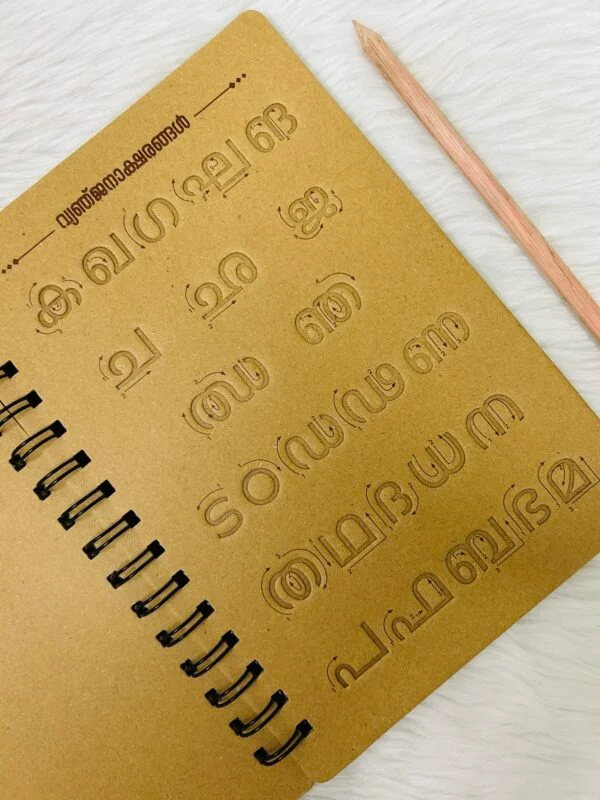 വ്യഞ്ജനാക്ഷരങ്ങൾ
ക ഖ ഗ ഘ ങ
ച ഛ ജ
ഝ ഞ
ട ഠ ഡ ഢ ണ
ത ഥ ദ ധ ന
പ ഫ ബ ഭ മ